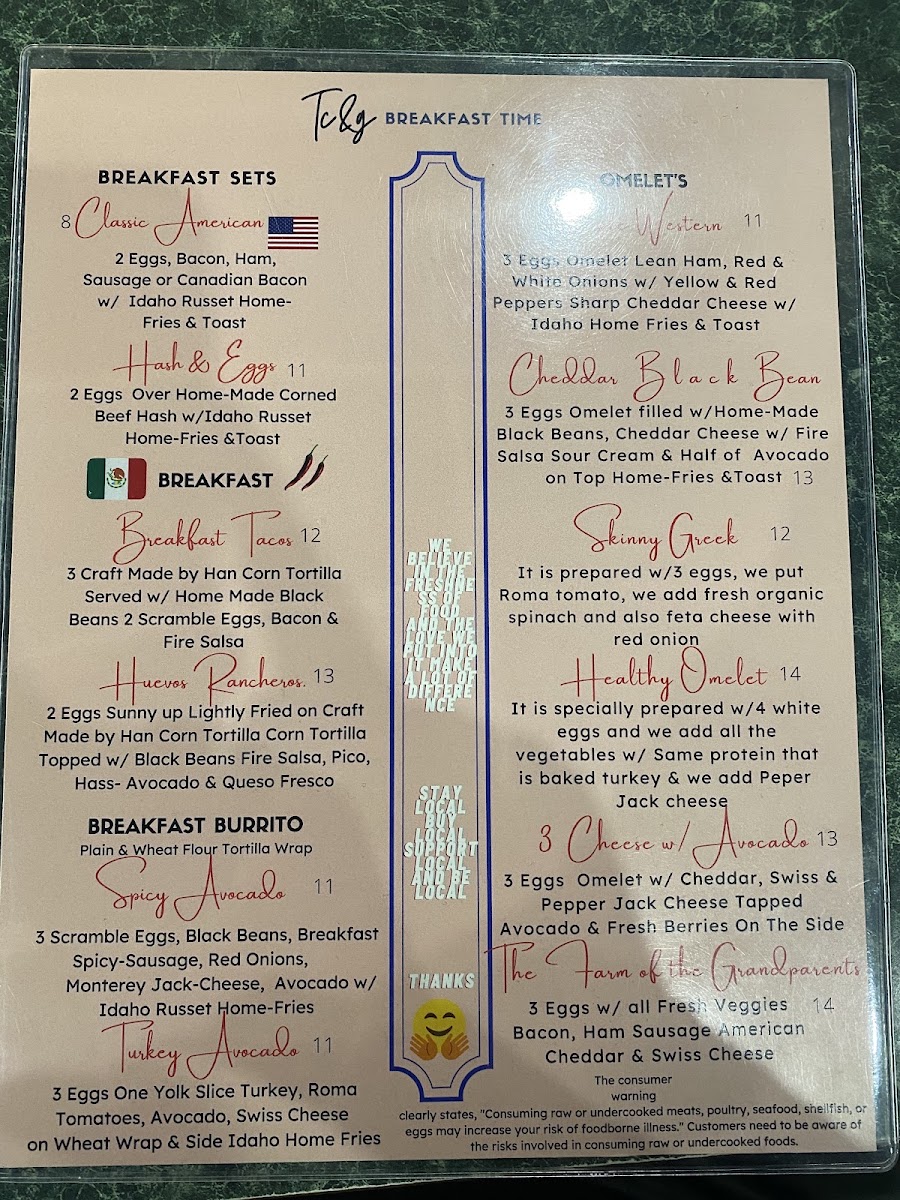 Tc&g BREAKFAST TIME
BREAKFAST SETS
8 Classic American
2 Eggs, Bacon, Ham,
Sausage or Canadian Bacon
w/ Idaho Russet Home-
Fries & Toast
Hash & Eggs 11
2 Eggs Over Home-Made Corned
Beef Hash w/Idaho Russet
Home-Fries &Toast
BREAKFAST
Breakfast Tacos 12
3 Craft Made by Han Corn Tortilla
Served w/ Home Made Black
Beans 2 Scramble Eggs, Bacon &
Fire Salsa
Huevos Rancheros. 13
2 Eggs Sunny up Lightly Fried on Craft
Made by Han Corn Tortilla Corn Tortilla
Topped w/ Black Beans Fire Salsa, Pico,
Hass- Avocado & Queso Fresco
BREAKFAST BURRITO
Plain & Wheat Flour Tortilla Wrap
Spicy Avocado 11
3 Scramble Eggs, Black Beans, Breakfast
Spicy-Sausage, Red Onions,
Monterey Jack-Cheese, Avocado w/
Idaho Russet Home-Fries
Turkey Avocado 11
3 Eggs One Yolk Slice Turkey, Roma
Tomatoes, Avocado, Swiss Cheese
on Wheat Wrap & Side Idaho Home Fries
WE
BELIEVE
IN THE
FRESHNE
SS OF
FOOD
AND THE
LOVE WE
PUT INTO
IT MAKE
A LOT OF
DIFFERE
NCE
STAY
LOCAL
BUY
LOCAL
SUPPORT
LOCAL
AND BE
LOCAL
THANKS
OMELET'S
Western 11
3 Eggs Omelet Lean Ham, Red &
White Onions w/ Yellow & Red
Peppers Sharp Cheddar Cheese w/
Idaho Home Fries & Toast
Cheddar Black Bean
3 Eggs Omelet filled w/Home-Made
Black Beans, Cheddar Cheese w/ Fire
Salsa Sour Cream & Half of Avocado
on Top Home-Fries &Toast 13
Skinny Greek 12
It is prepared w/3 eggs, we put
Roma tomato, we add fresh organic
spinach and also feta cheese with
red onion
Healthy Omelet 14
It is specially prepared w/4 white
eggs and we add all the
vegetables w/ Same protein that
is baked turkey & we add Peper
Jack cheese
3 Cheese w/ Avocado 13
3 Eggs Omelet w/ Cheddar, Swiss &
Pepper Jack Cheese Tapped
Avocado & Fresh Berries On The Side
The Farm of the Grandparents
3 Eggs w/ all Fresh Veggies 14
Bacon, Ham Sausage American
Cheddar & Swiss Cheese
The consumer
warning
clearly states, "Consuming raw or undercooked meats, poultry, seafood, shellfish, or
eggs may increase your risk of foodborne illness." Customers need to be aware of
the risks involved in consuming raw or undercooked foods.